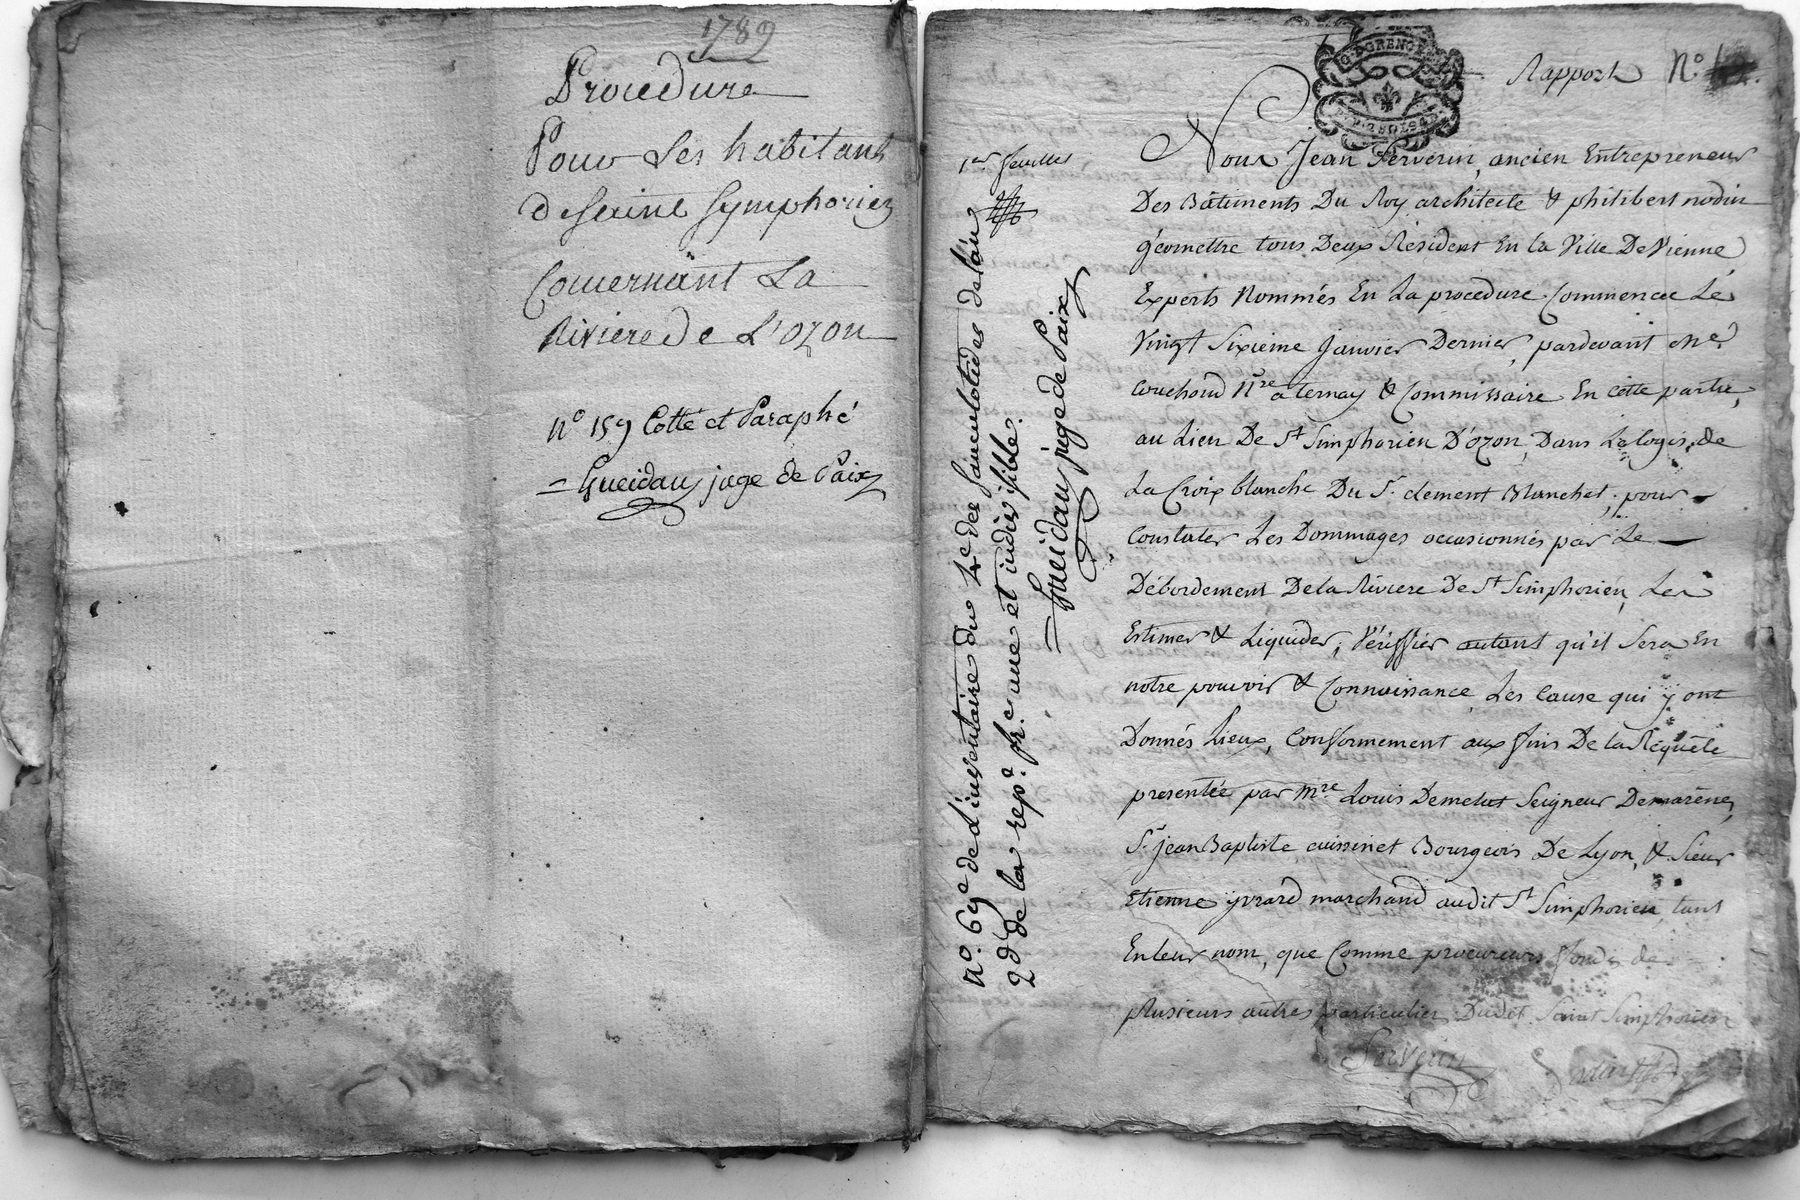 1789
Procedure
Pour Les habitants
de Saint Symphorien
Concernant La
Riviere de L'ozon
n.° 159 Cotté et Paraphé
Gueidan juge de Paix
Rapport N.°
1.er feuillet
Nous Jean Serverin, ancien Entrepreneur
Des Bâtiments Du Roy architecte & philibert nodin
géomettre tous Deux Résident En la Ville De Vienne
Experts Nommés En La procedure Commencée Le
Vingt Sixieme Janvier Dernier, pardevant me.
Couchoud N.re a ternay & Commissaire En Cette partie,
au Lieu De S.t Simphorien D'ozon, Dans Le logis de
La Croix blanche Du S.r clement Blanchet, pour
Constater Les Dommages occasionnés par Le
Débordement De la Riviere De S.t Simphorien, Les
Estimer & Liquider, Vériffier autant qu'il Sera En
notre pouvoir & Connoissance, Les Cause qui y ont
Donnés Lieux, Conformement aux fins De la Réquête
presentée par M.re Louis Demelat Seigneur Demarène,
S.r jean Baptiste cuissinet Bourgeois De Lyon, & Sieur
Etienne yvrard marchand audit S.t Simphorien, tant
En leur nom, que Comme procureurs fondés de
plusieurs autres particulier Dudit Saint Simphorien
Serverin nodin
n.° 69 de l'inventaire du 4.e des Sanculotides de l'an
2.d de la rep.e fr.e une et indivisible.
Gueidan juge de Paix